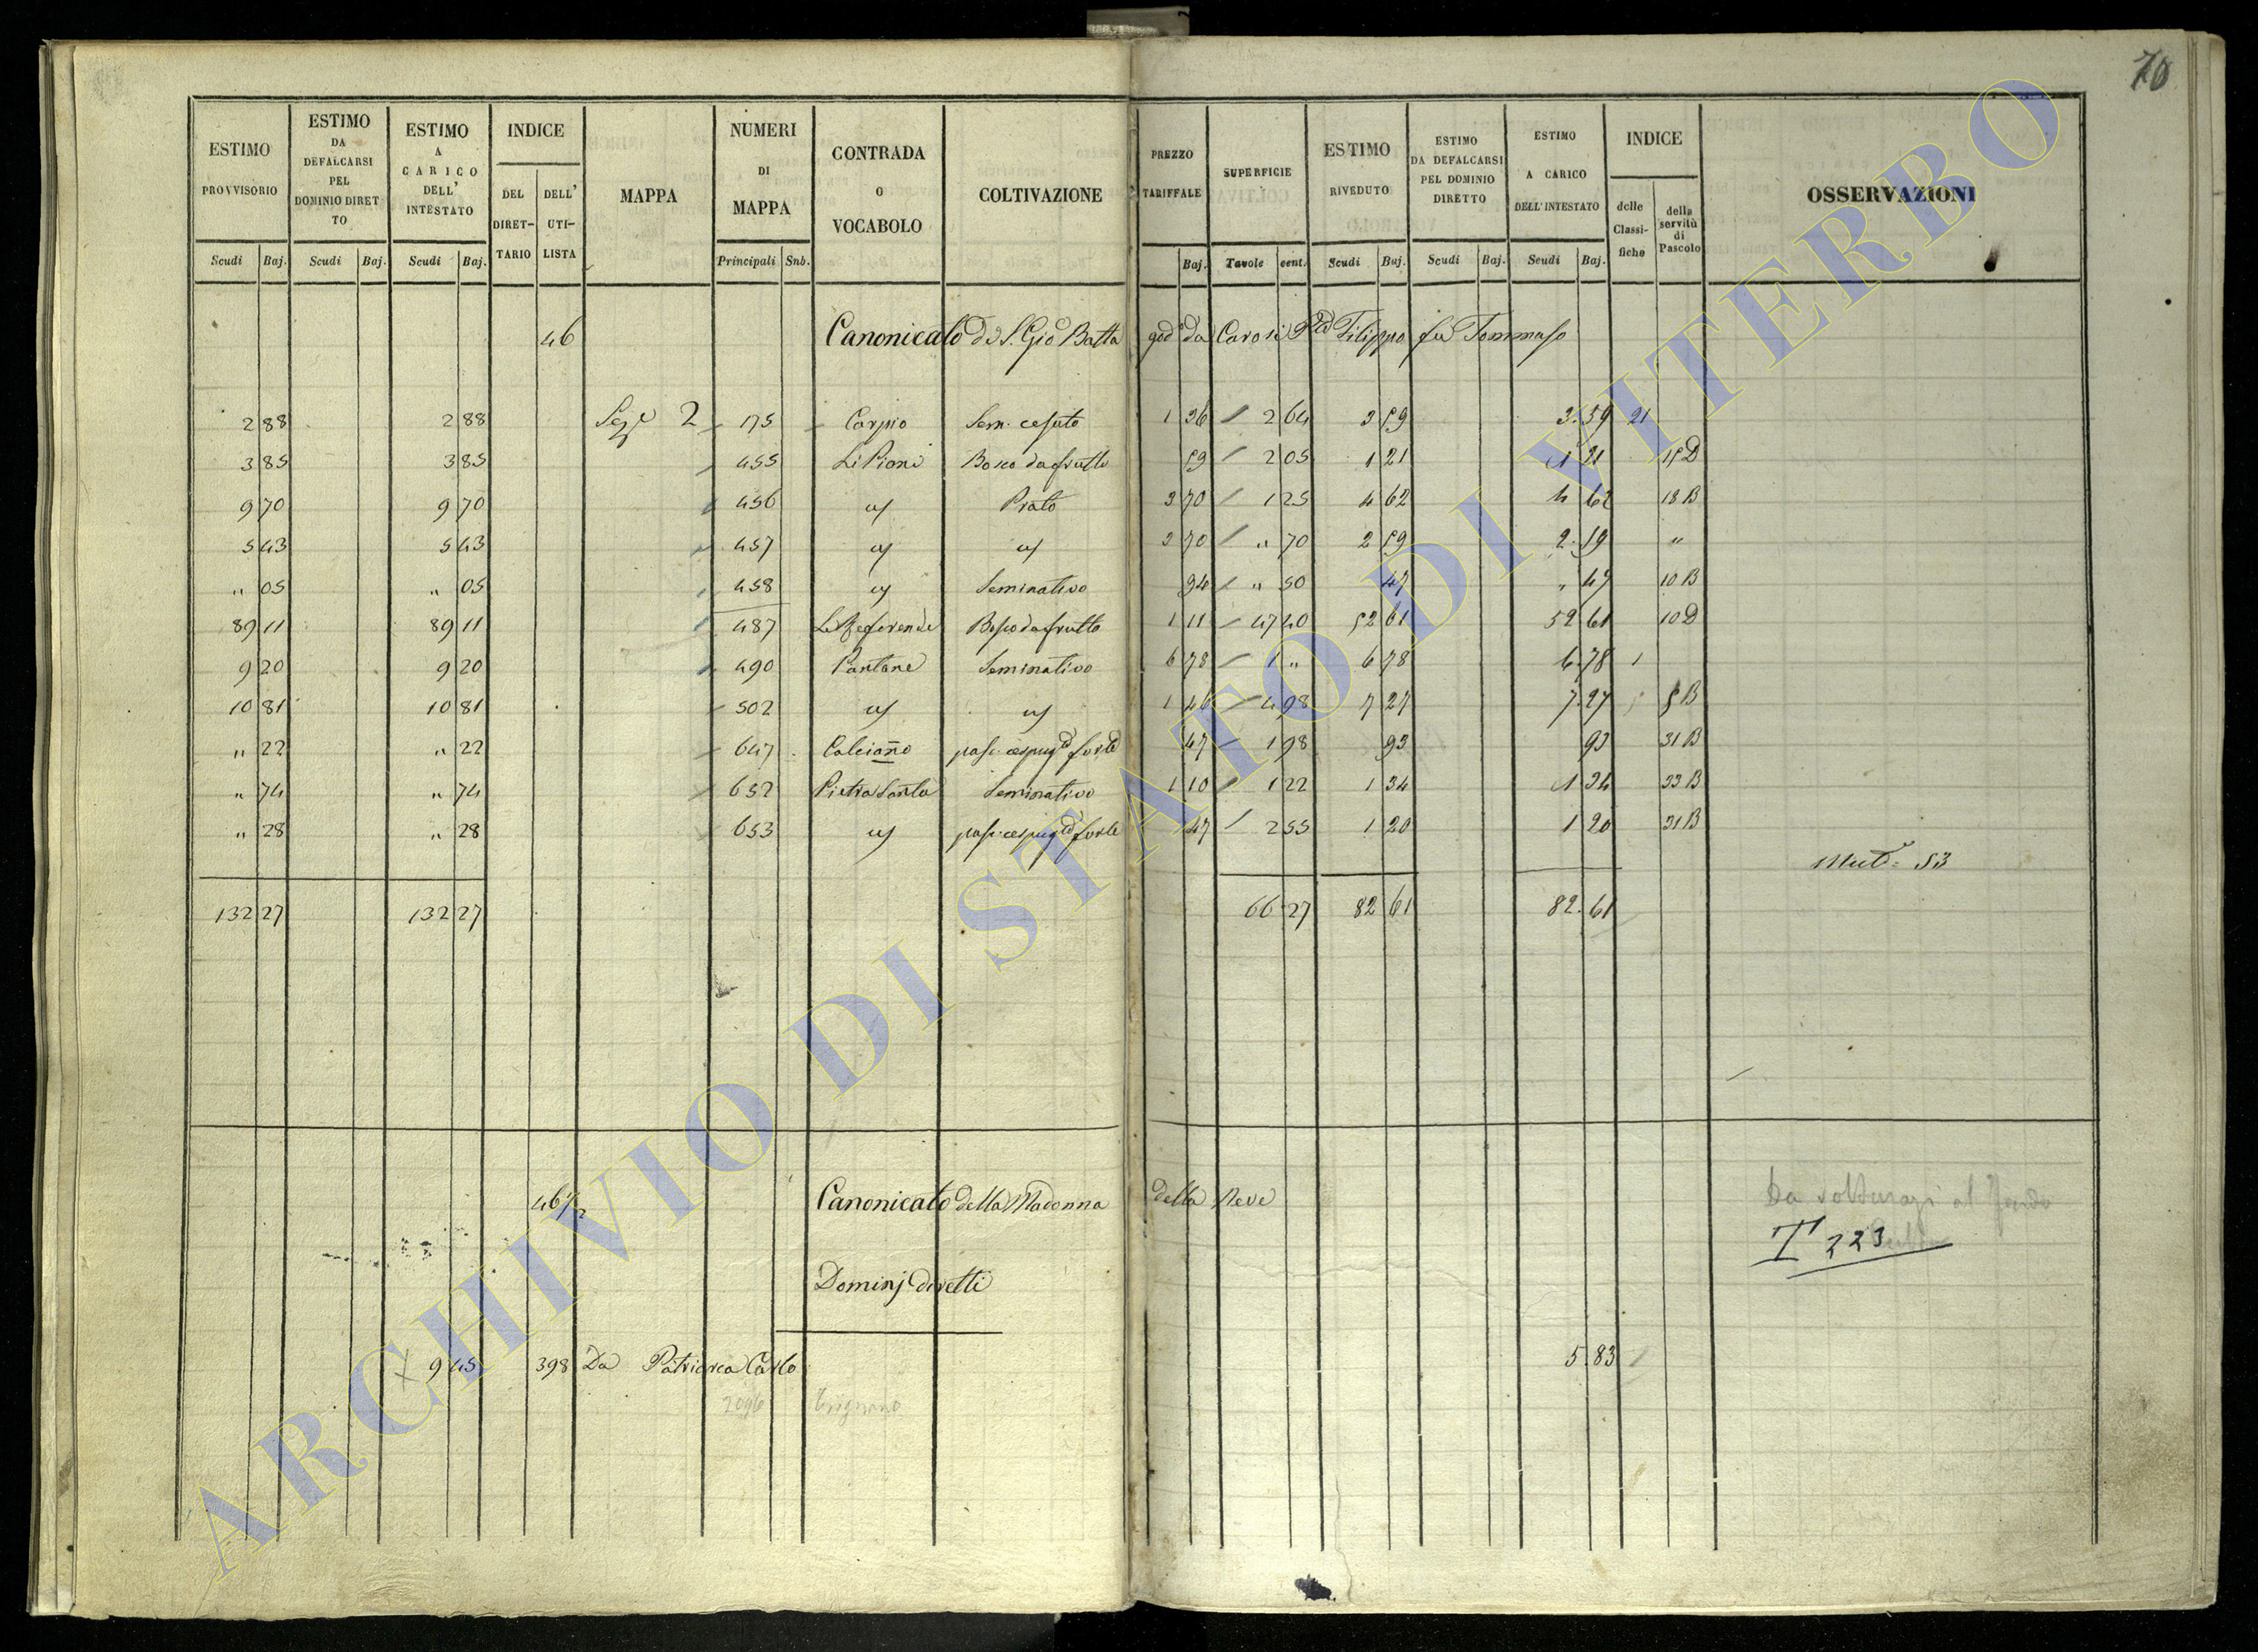 70
ESTIMO PROVVISORIO | ESTIMO DA DEFALCARSI PEL DOMINIO DIRETTO | ESTIMO A CARICO DELL' INTESTATO | INDICE DEL DIRET-TARIO | DELL' UTI-LISTA | MAPPA | NUMERI DI MAPPA | CONTRADA O VOCABOLO | COLTIVAZIONE | PREZZO TARIFFALE | SUPERFICIE | ESTIMO RIVEDUTO | ESTIMO DA DEFALCARSI PEL DOMINIO DIRETTO | ESTIMO A CARICO DELL'INTESTATO | INDICE delle Classi-fiche | della servitù di Pascolo | OSSERVAZIONI
Scudi | Baj. | Scudi | Baj. | Scudi | Baj. | Principali | Snb. | Baj. | Tavole | cent. | Scudi | Baj. | Scudi | Baj. | Scudi | Baj.
46 Canonicato di S. Gio Batta god° da Carosi Filippo fu Tommaso
2 88 | 2 88 | Sez.e 2 | 175 | Carpio | Sem. cesato | 1 36 | 2 64 | 3 59 | 3.59 | 21
3 85 | 3 85 | 455 | Li Piani | Bosco da frutto | 59 | 2 05 | 1 21 | 1 21 | 15 D
9 70 | 9 70 | 456 | | Prato | 3 70 | 1 25 | 4 62 | 4 62 | 18 B
5 43 | 5 43 | 457 | 3 70 | " 70 | 2 59 | 2.59 | "
" 05 | " 05 | 458 | | Seminativo | 94 | " 50 | 47 | " 47 | 10 B
89 11 | 89 11 | 487 | | Bosco da frutto | 1 11 | 47 40 | 52 61 | 52 61 | 10 D
9 20 | 9 20 | 490 | Pantane | Seminativo | 6 78 | 1 " | 6 78 | 6.78 | 1
10 81 | 10 81 | 502 | 1 46 | 4 98 | 7 27 | 7.27 | 5 B
" 22 | " 22 | 647 | Calciano | pasc. cespug.to forte | 47 | 1 98 | 93 | 93 | 31 B
" 74 | " 74 | 652 | Pietra Santa | Seminativo | 1 10 | 1 22 | 1 34 | 1 34 | 33 B
" 28 | " 28 | 653 | | pasc. cespug.to forte | 47 | 2 55 | 1 20 | 1 20 | 31 B
Mut.e 53
132 27 | 132 27 | 66 27 | 82 61 | 82.61
46 1/2 Canonicato della Madonna della Neve
T 223
Dominj diretti
9 45 | 398 | Da Patriarca Carlo | 5.83
ARCHIVIO DI STATO DI VITERBO